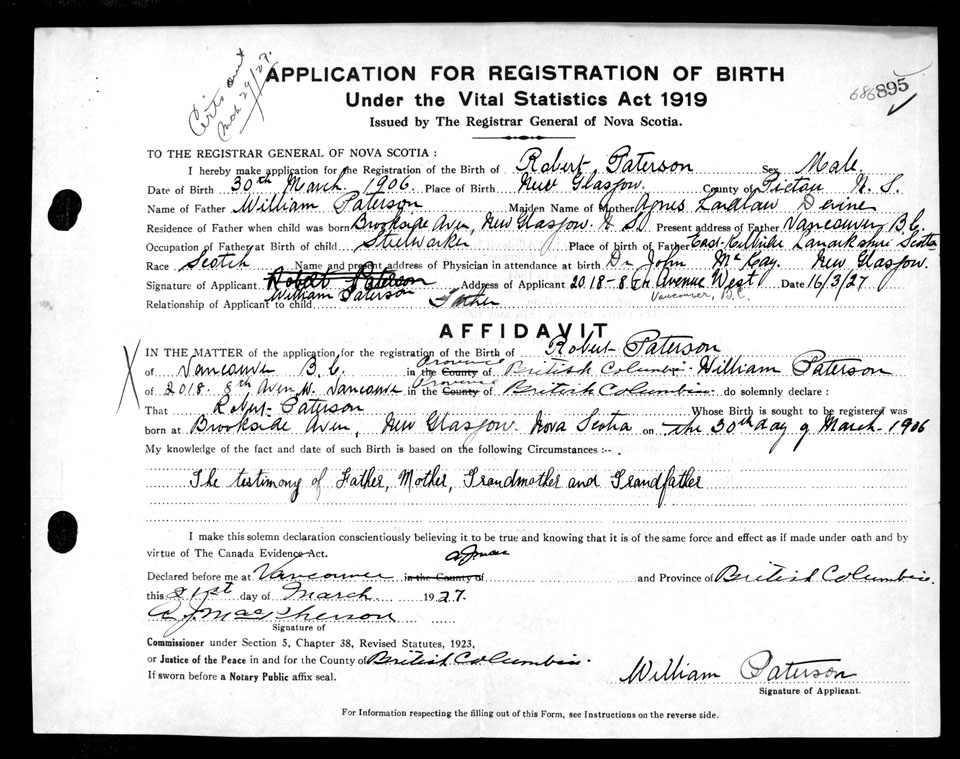 Certs out
Mch 29/27.
APPLICATION FOR REGISTRATION OF BIRTH
686895
Under the Vital Statistics Act 1919
Issued by The Registrar General of Nova Scotia.
TO THE REGISTRAR GENERAL OF NOVA SCOTIA :
I hereby make application for the Registration of the Birth of Robert Paterson Sex Male
Date of Birth 30th March. 1906. Place of Birth New Glasgow. County of Pictou N. S.
Name of Father William Paterson Maiden Name of Mother Agnes Laidlaw Devine
Residence of Father when child was born Brookside Aven, New Glasgow. N. S. Present address of Father Vancouver, B.C.
Occupation of Father at Birth of child Steelworker Place of birth of Father East-Kilbride Lanarkshire Scotia
Race Scotch Name and present address of Physician in attendance at birth Dr John McKay. New Glasgow.
Signature of Applicant Robert Paterson Address of Applicant 2018-8th Avenue West Date 16/3/27
William Paterson Vancouver, B.C.
Relationship of Applicant to child Father
AFFIDAVIT
IN THE MATTER of the application for the registration of the Birth of Robert Paterson
of Vancouver B. C. in the County of Province British Columbia. William Paterson
of 2018. 8th Aven W. Vancouver in the County of Province British Columbia. do solemnly declare :
That Robert Paterson Whose Birth is sought to be registered was
born at Brookside Aven, New Glasgow. Nova Scotia on the 30th day of March. 1906
My knowledge of the fact and date of such Birth is based on the following Circumstances :--
The testimony of Father, Mother, Grandmother and Grandfather
I make this solemn declaration conscientiously believing it to be true and knowing that it is of the same force and effect as if made under oath and by
virtue of The Canada Evidence Act.
Declared before me at Vancouver in the County of and Province of British Columbia.
this 21st day of March 1927.
A. J. MacPherson
Signature of
Commissioner under Section 5, Chapter 38, Revised Statutes, 1923,
or Justice of the Peace in and for the County of British Columbia.
If sworn before a Notary Public affix seal.
William Paterson
Signature of Applicant.
For Information respecting the filling out of this Form, see Instructions on the reverse side.